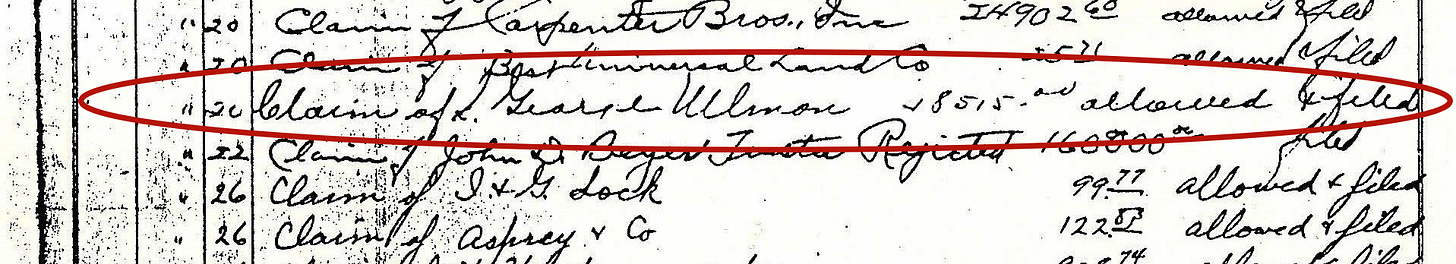 " 20 Claim of Carpenter Bros., Inc 14902 60 allowed & filed
" 20 Claim of Best Universal Land Co allowed & filed
" 20 Claim of George Ulman 8515.00 allowed & filed
" 22 Claim of John D. Trustee Rejected 160000 00 filed
" 26 Claim of I & G. Lock 99 77 allowed & filed
" 26 Claim of Asprey & Co 122 83 allowed & filed
74